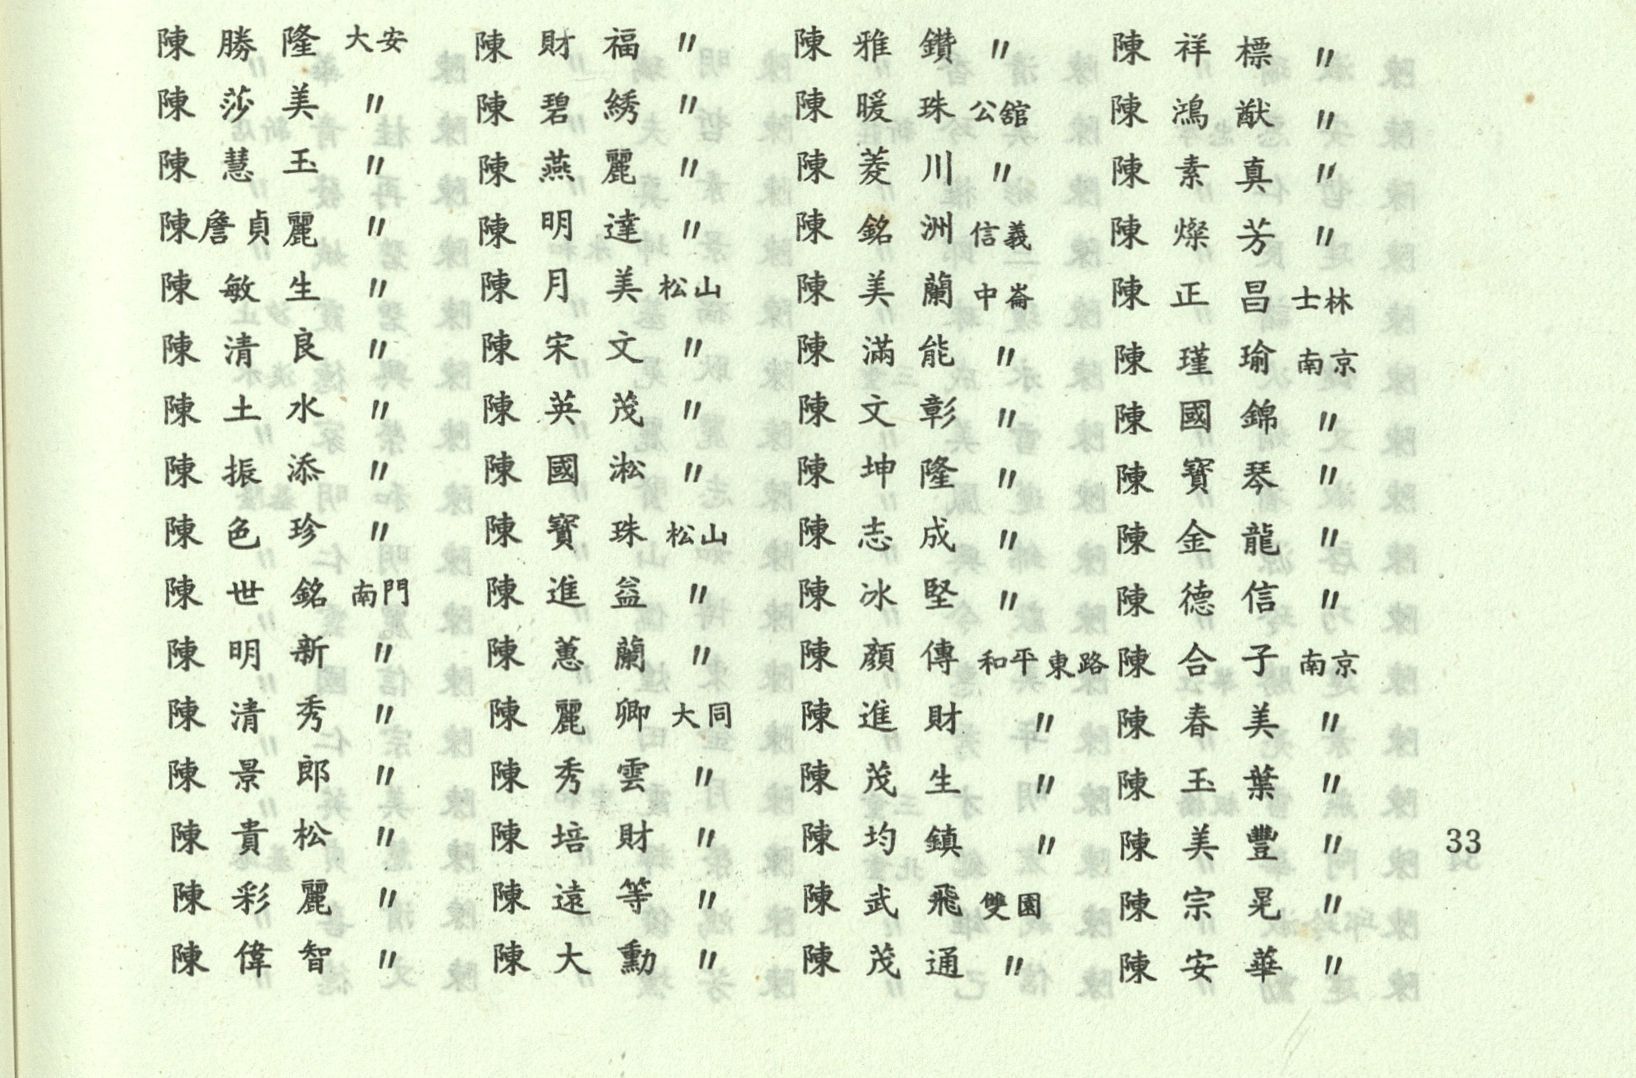 陳勝隆 大安
陳莎美 〃
陳慧玉 〃
陳詹貞麗 〃
陳敏生 〃
陳清良 〃
陳土水 〃
陳振添 〃
陳色珍 〃
陳世銘 南門
陳明新 〃
陳清秀 〃
陳景郎 〃
陳貴松 〃
陳彩麗 〃
陳偉智 〃
陳財福 〃
陳碧綉 〃
陳燕麗 〃
陳明達 〃
陳月美 松山
陳宋文 〃
陳英茂 〃
陳國淞 〃
陳寶珠 松山
陳進益 〃
陳蕙蘭 〃
陳麗卿 大同
陳秀雲 〃
陳培財 〃
陳遠等 〃
陳大勳 〃
陳雅鑽 〃
陳暖珠 公舘
陳菱川 〃
陳銘洲 信義
陳美蘭 中崙
陳滿能 〃
陳文彰 〃
陳坤隆 〃
陳志成 〃
陳冰堅 〃
陳顏傳 和平東路
陳進財 〃
陳茂生 〃
陳均鎮 〃
陳武飛 雙園
陳茂通 〃
陳祥標 〃
陳鴻猷 〃
陳素真 〃
陳燦芳 〃
陳正昌 士林
陳瑾瑜 南京
陳國錦 〃
陳寶琴 〃
陳金龍 〃
陳德信 〃
陳合子 南京
陳春美 〃
陳玉葉 〃
陳美豐 〃
陳宗晃 〃
陳安華 〃
33